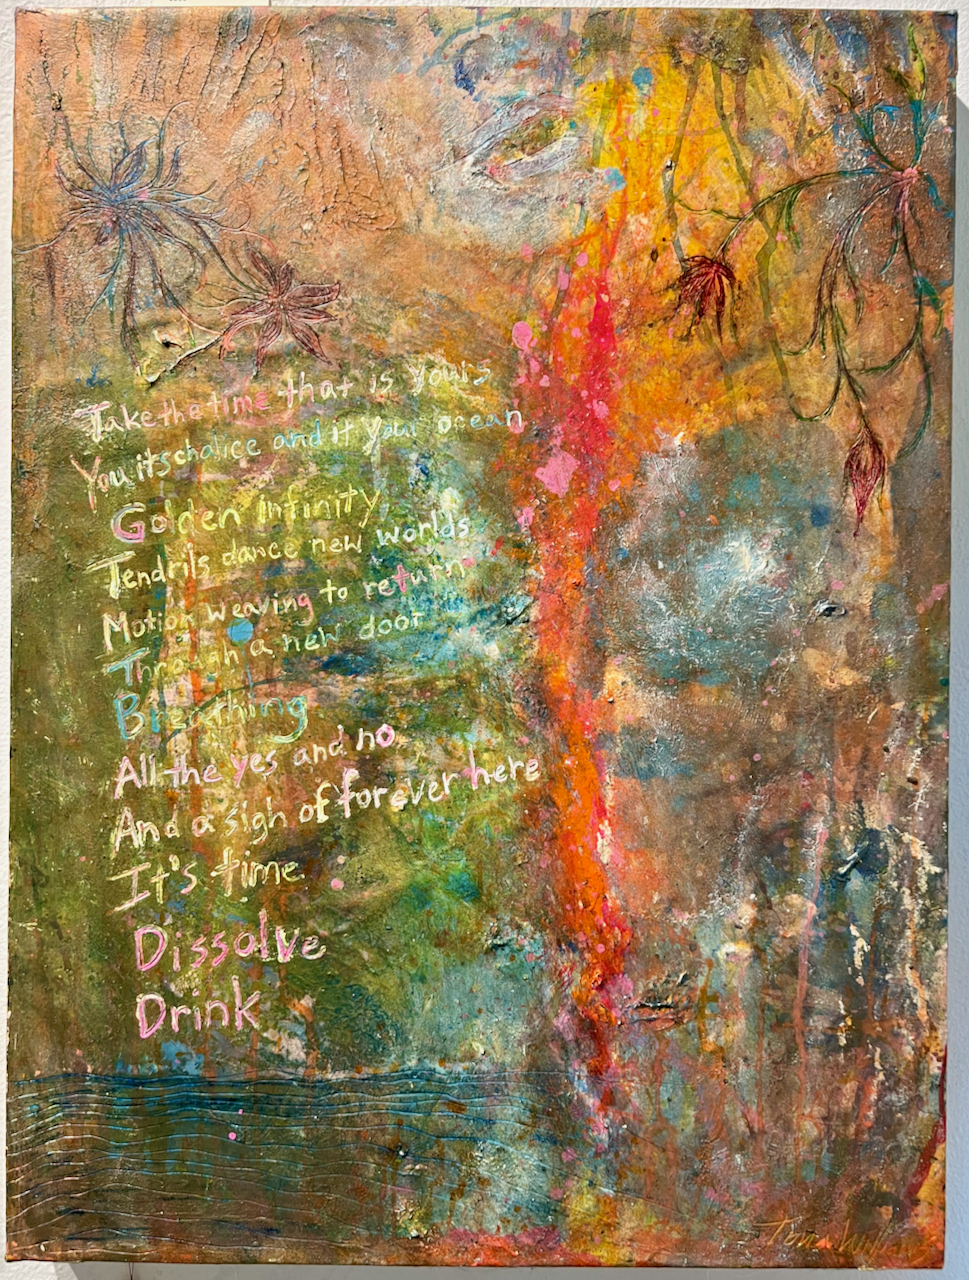 Take the time that is yours
You its chalice and it your ocean
Golden infinity
Tendrils dance new worlds
Motion weaving to return
Through a new door
Breathing
All the yes and no
And a sigh of forever here
It's time
Dissolve
Drink